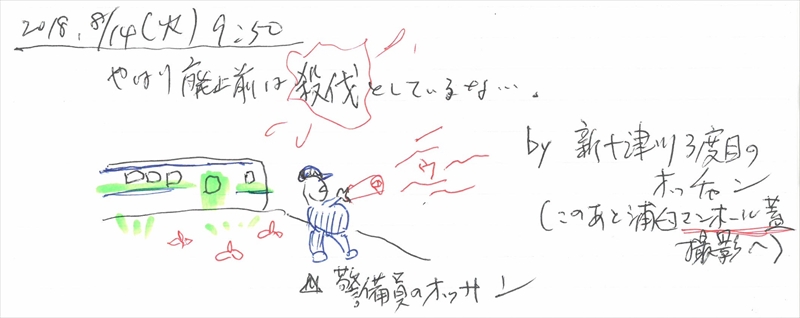 2018.8/14(火) 9:50
やはり廃止前は殺伐としているな….
by 新十津川3度目の
オッチャン
(このあと浦臼マンホール蓋
撮影へ)
警備員のオッサン